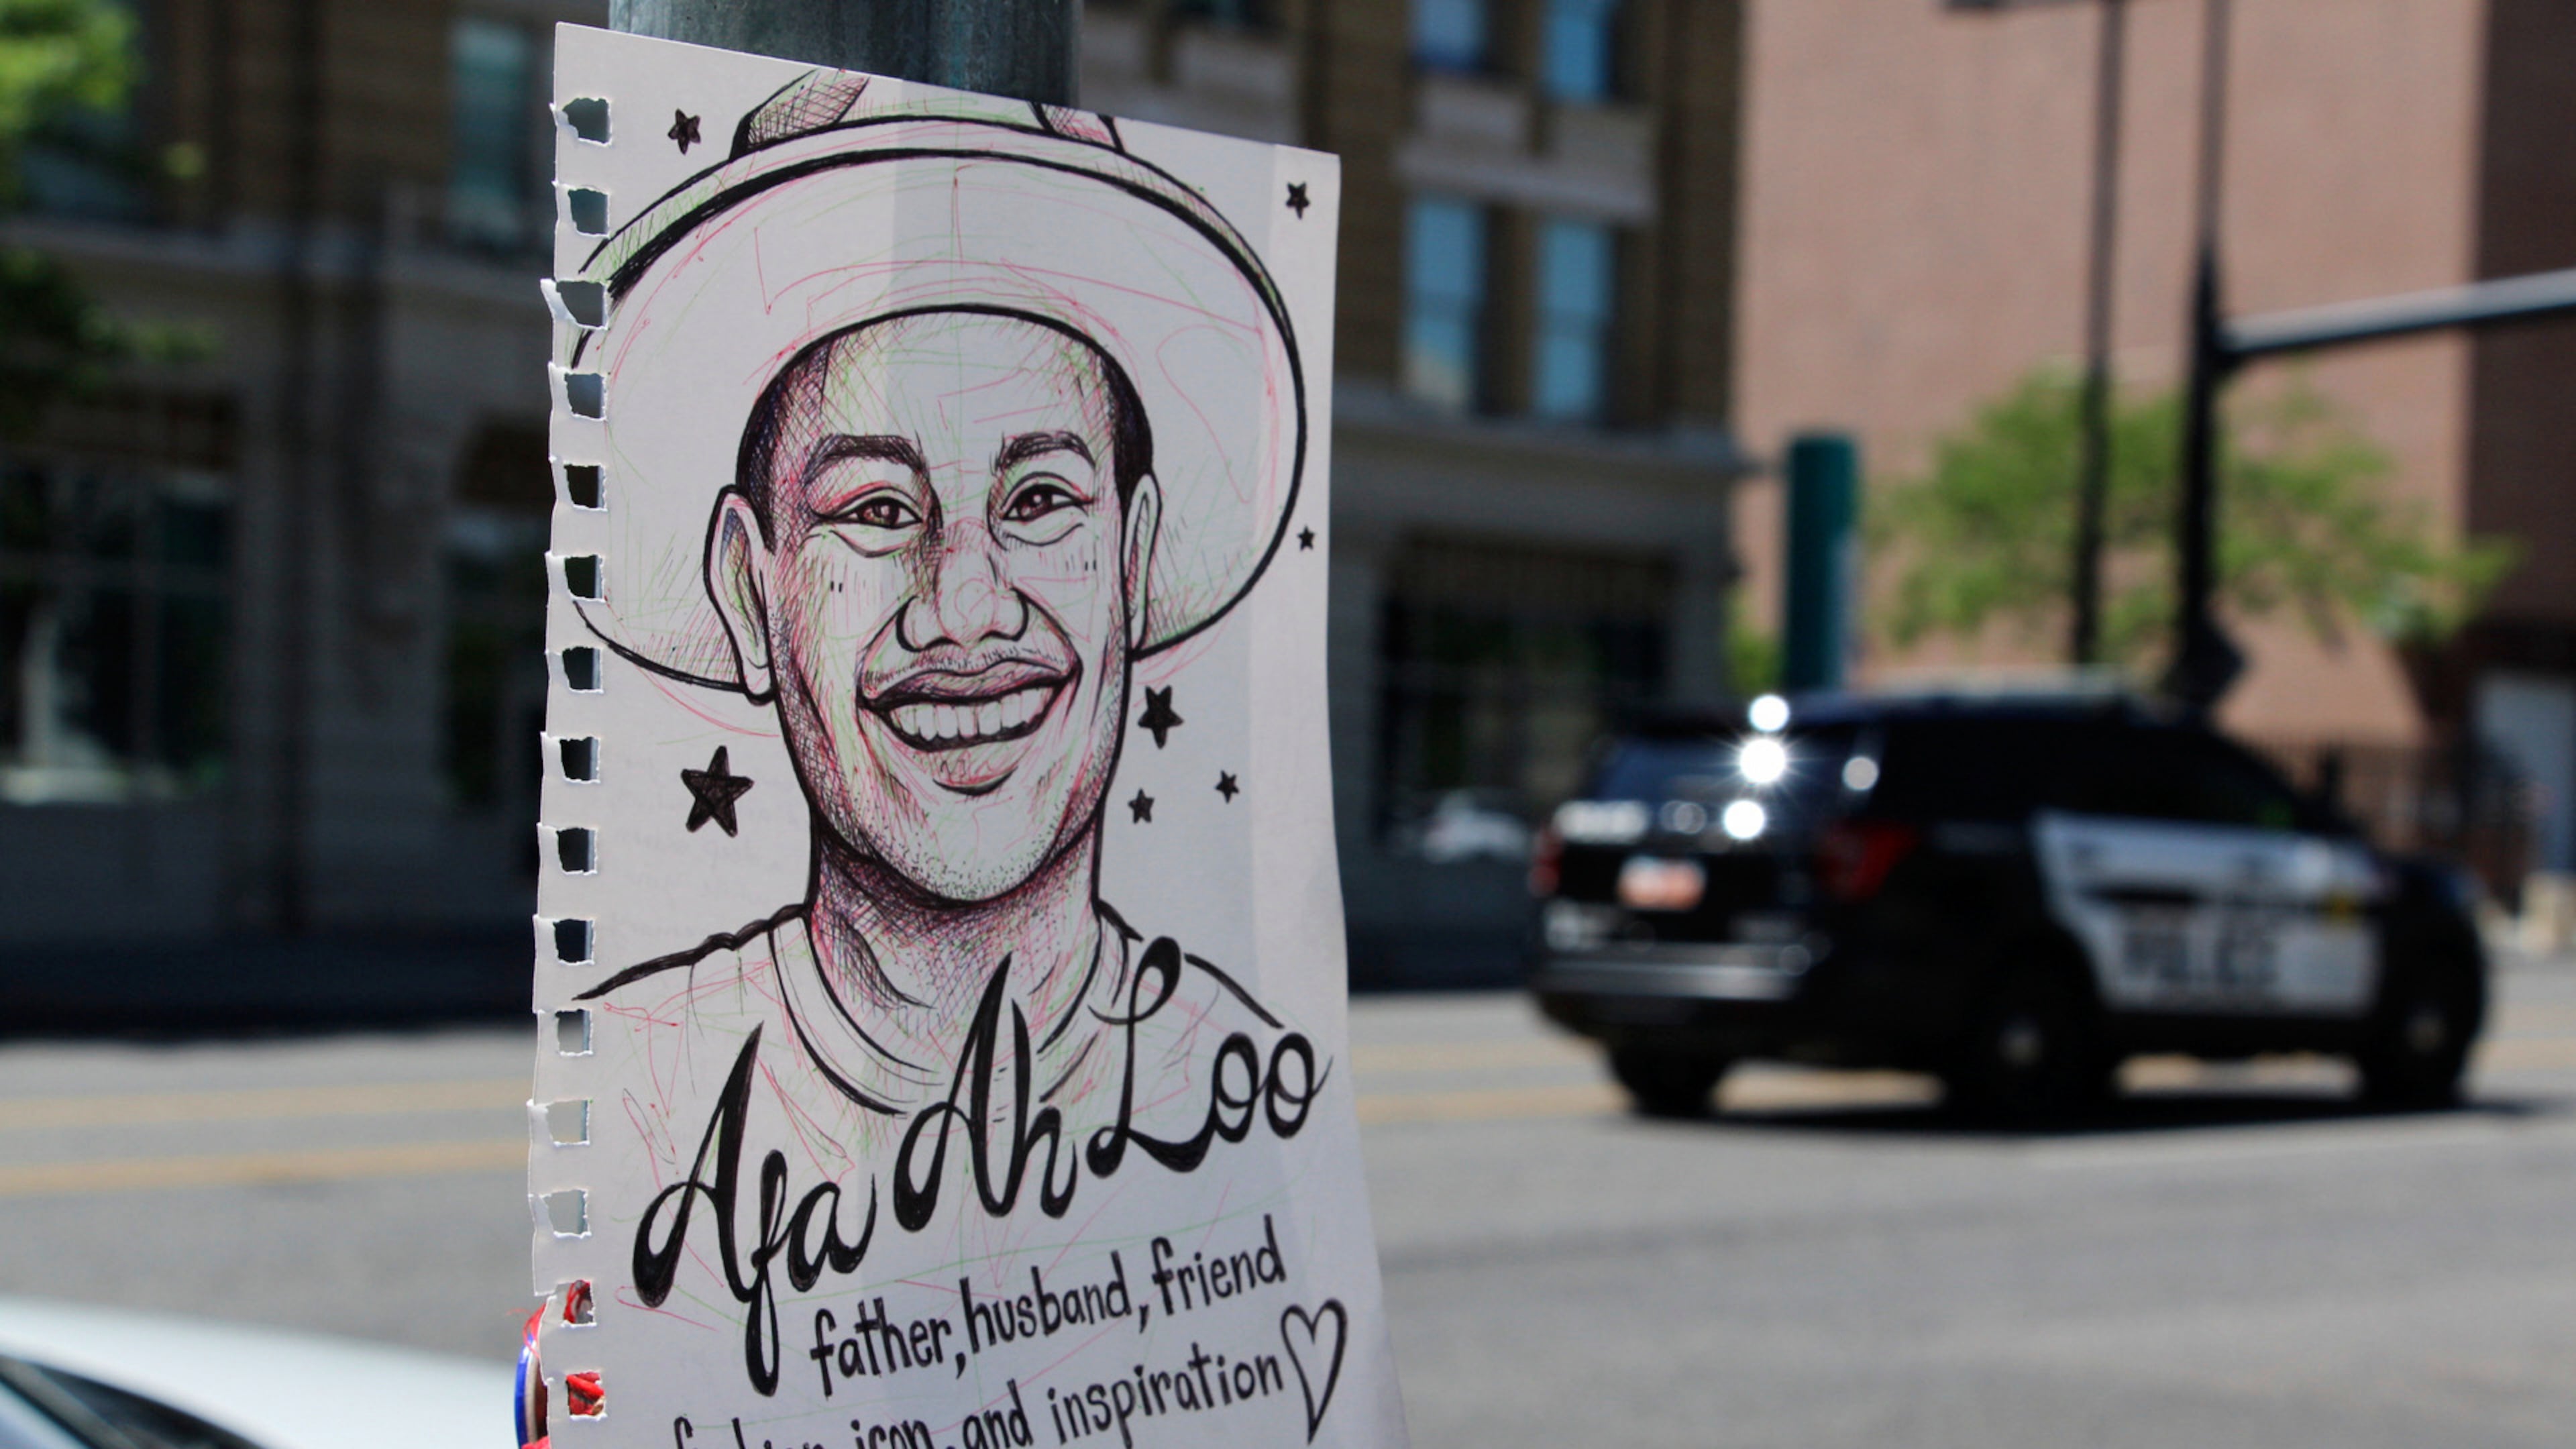 Afa Ah Loo
father, husband, friend
fashion icon, and inspiration
POLICE